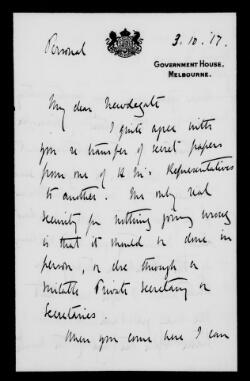 Personal
3.10.'17.
GOVERNMENT HOUSE,
MELBOURNE.
My dear Newdegate
I quite agree with
you re transfer of secret papers
from one of H.M's Representatives
to another. The only real
security for nothing going wrong
is that it should be done in
person, or else through a
suitable Private Secretary or
Secretaries.
When you come here I can